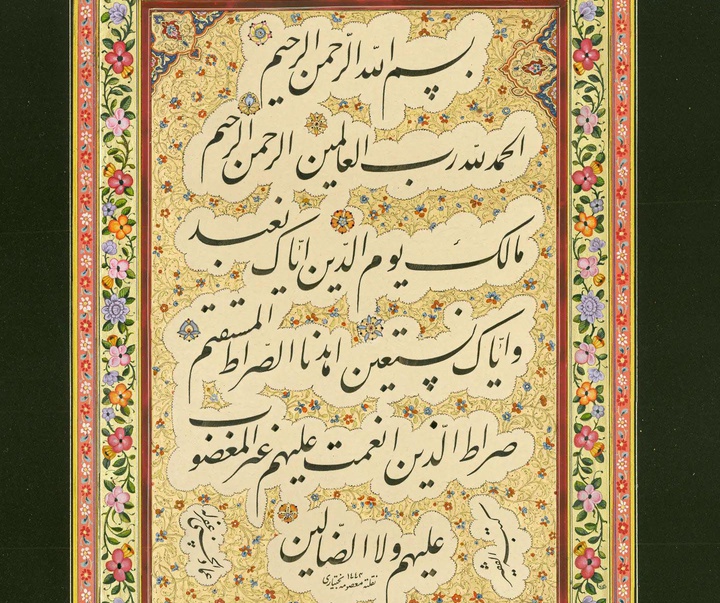 بسم الله الرّحمن الرحیم
الحمد لله رب العالمین الرحمن الرحیم
مالک یوم الدّین ایّاک نعبد
و ایّاک نستعین اهدنا الصّراط المستقیم
صراط الّذین انعمت علیهم غیر المغضوب
علیهم ولا الضّالین
کتبه الفقیر
عماد الحسنی غفر له
نقلته معصومه بختیاری ۱۴۴۲